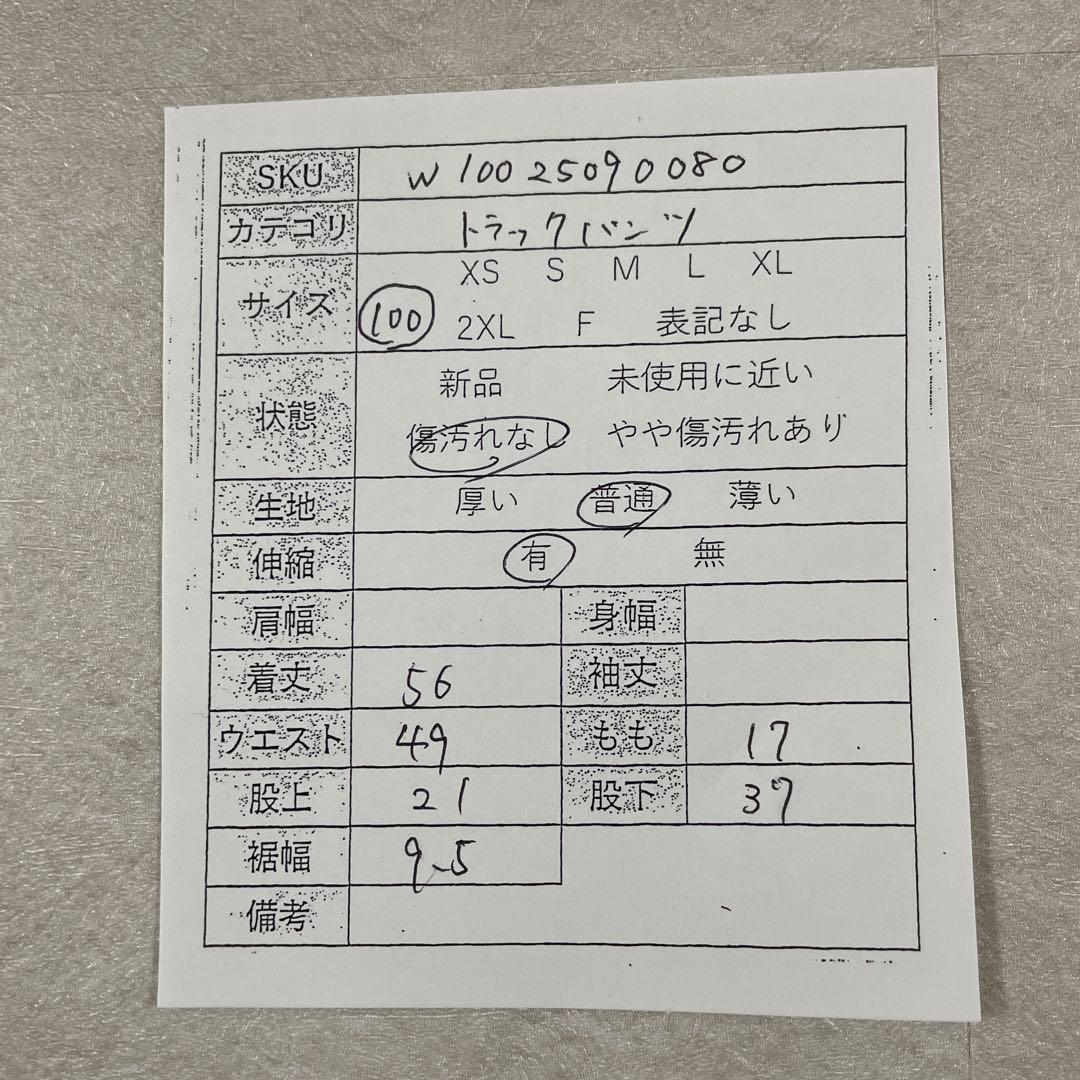 SKU W10025090080
カテゴリ トラックパンツ
サイズ XS S M L XL
100 2XL F 表記なし
状態 新品 未使用に近い
傷汚れなし やや傷汚れあり
生地 厚い 普通 薄い
伸縮 有 無
肩幅 身幅
着丈 56 袖丈
ウエスト 49 もも 17
股上 21 股下 37
裾幅 9.5
備考